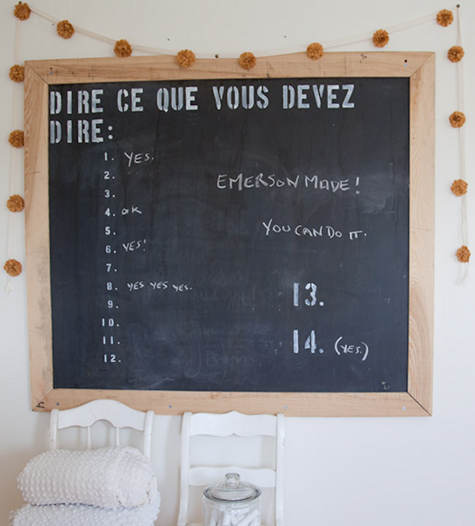 DIRE CE QUE VOUS DEVEZ
DIRE:
1. YES.
2.
EMERSON MADE!
3.
4. ok
5.
YOU CAN DO IT.
6. YES!
7.
8. YES YES YES.
13.
9.
10.
11.
14. (YES.)
12.